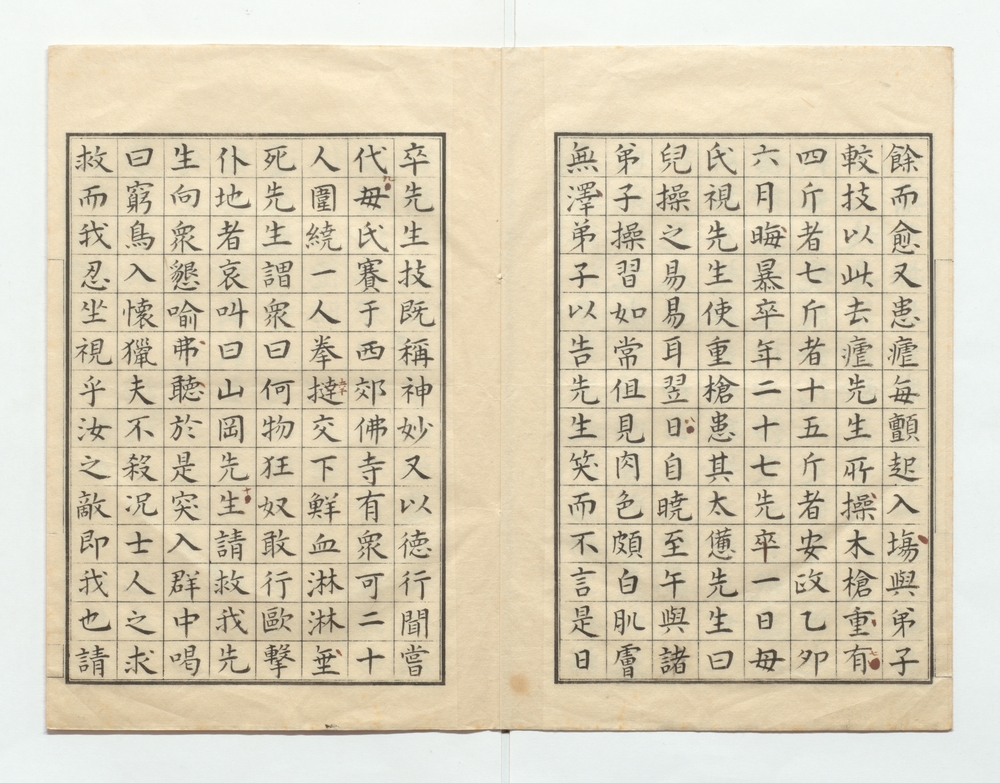 餘而愈又患瘧毎顫起入塲與弟子
較技以此去瘧先生所操木槍重有
四斤者七斤者十五斤者安政乙卯
六月晦暴卒年二十七先卒一日毋
氏視先生使重槍患其太憊先生曰
兒操之易易耳翌日自曉至午與諸
弟子操習如常但見肉色頗白肌膚
無澤弟子以告先生笑而不言是日
卒先生技既稱神妙又以德行聞嘗
代毋氏賽于西郊佛寺有衆可二十
人圍繞一人拳撻交下鮮血淋淋垂
死先生謂衆曰何物狂奴敢行歐擊
仆地者哀叫曰山岡先生請救我先
生向衆懇喻弗聽於是突入群中喝
曰窮鳥入懷獵夫不殺况士人之求
救而我忍坐視乎汝之敵即我也請